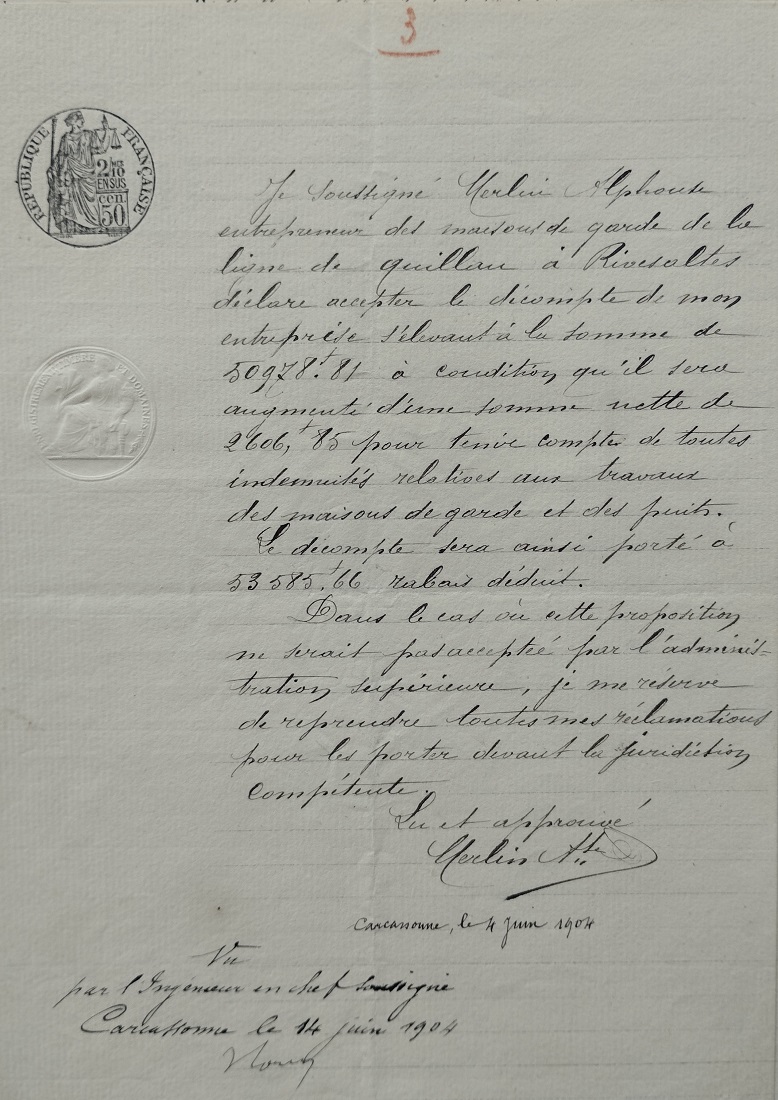 3
RÉPUBLIQUE FRANÇAISE
2/10
EN SUS
50 cen.
ENREGISTREMENT TIMBRE ET DOMAINES
Je soussigné Merlin Alphonse
entrepreneur des maisons de garde de la
ligne de Quillan à Rivesaltes
déclare accepter le décompte de mon
entreprise s'élevant à la somme de
50978f.81 à condition qu'il sera
augmenté d'une somme nette de
2606,f85 pour tenir compte de toutes
indemnités relatives aux travaux
des maisons de garde et des puits.
Le décompte sera ainsi porté à
53585f.66 rabais déduit.
Dans le cas où cette proposition
ne serait pas acceptée par l'adminis=
tration supérieure, je me réserve
de reprendre toutes mes réclamations
pour les porter devant la juridiction
compétente.
Lu et approuvé
Merlin Ate
Carcassonne, le 4 juin 1904
Vu
par l'Ingénieur en chef soussigné
Carcassonne le 14 juin 1904